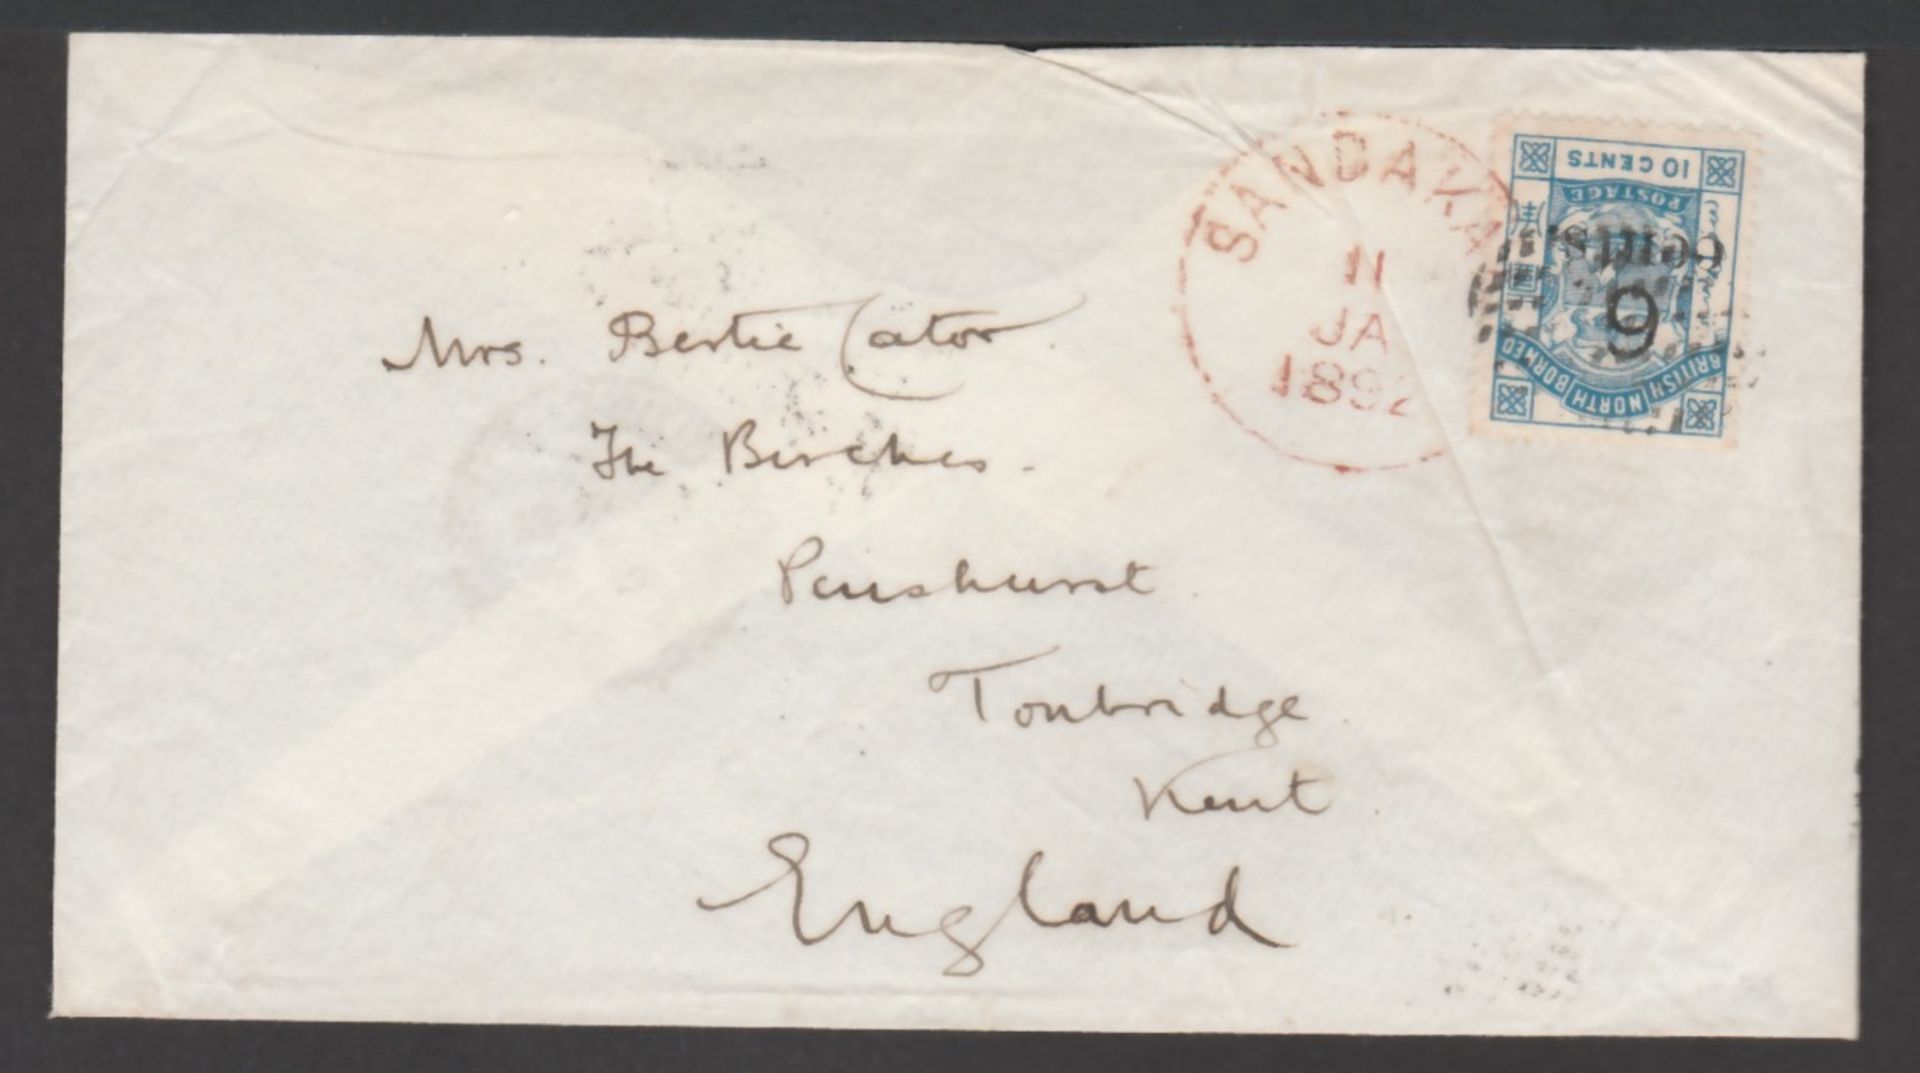 SANDAKA
11
JA
1892
10 CENTS
POSTAGE
cents.
6
BRITISH NORTH BORNEO
Mrs. Bertie Cator.
The Birches.
Penshurst.
Tonbridge.
Kent.
England